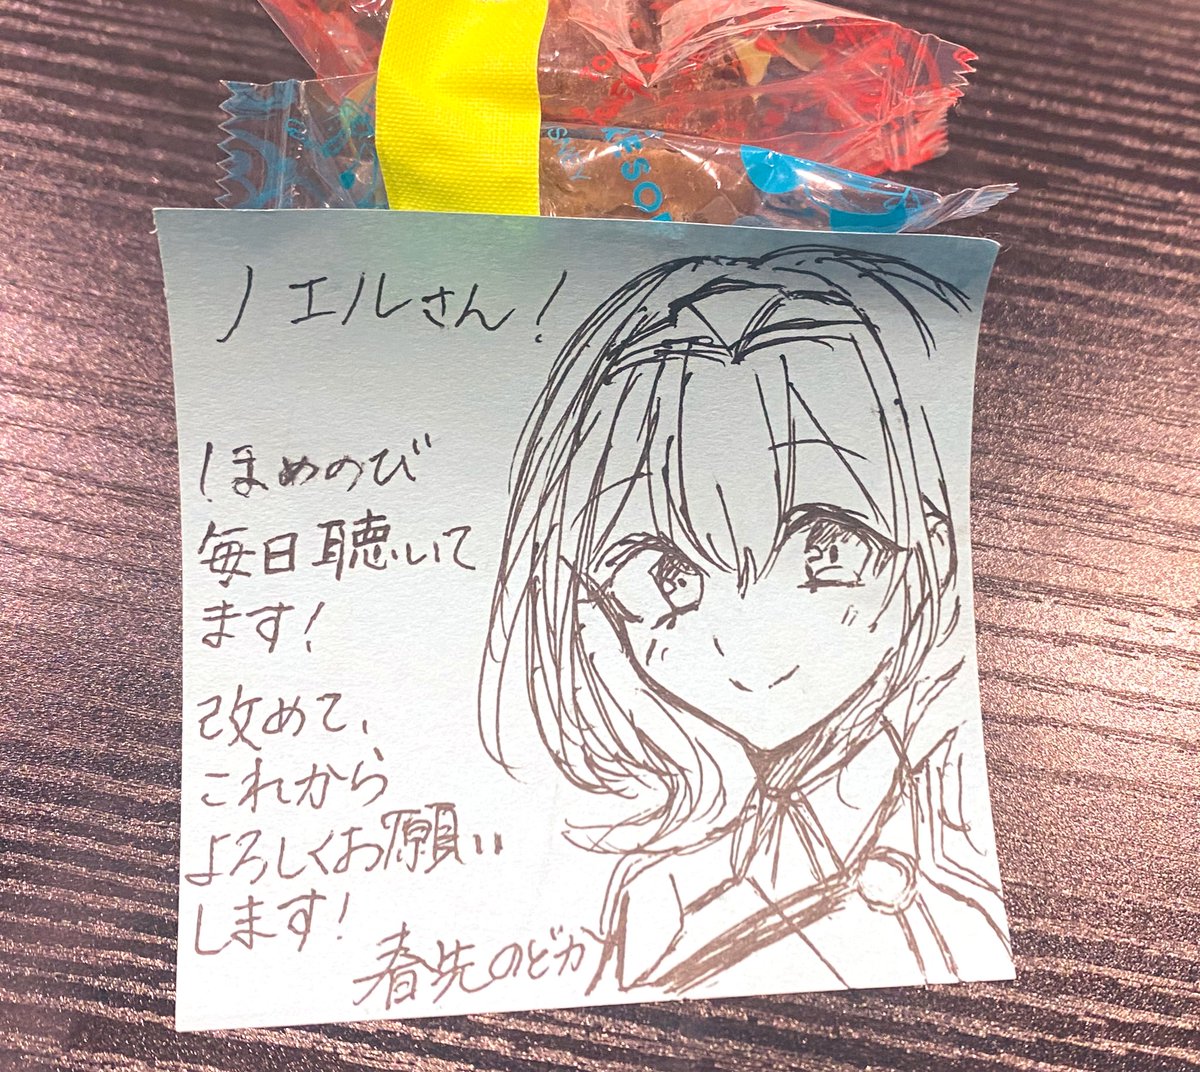 ノエルさん!
ほめのび
毎日聴いて
ます!
改めて、
これから
よろしくお願い
します!
春先のどか